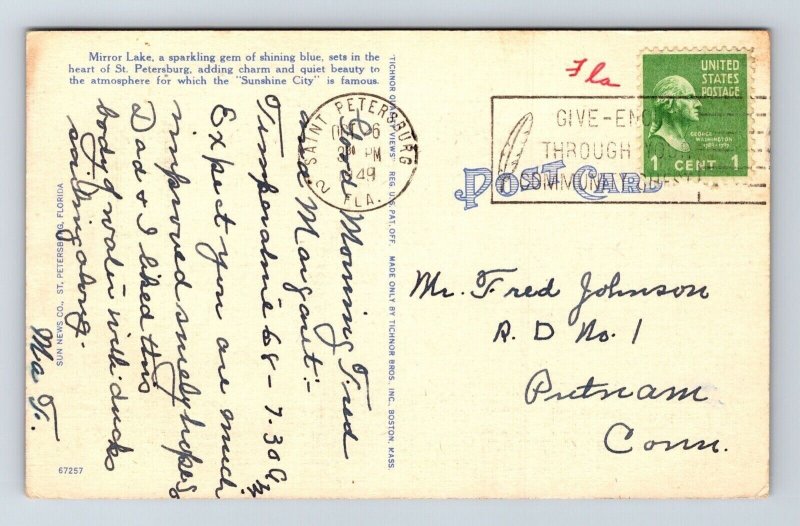 Mirror Lake, a sparkling gem of shining blue, sets in the
heart of St. Petersburg, adding charm and quiet beauty to
the atmosphere for which the "Sunshine City" is famous.
Good Morning Fred
and Margaret:-
68 - 7.30 A.M.
Expect you are much
improved surely hope so
Dad & I liked this
body of water with ducks
sailing along.
Ma F.
SUN NEWS CO., ST. PETERSBURG, FLORIDA
67257
TICHNOR QUALITY VIEWS REG. U.S. PAT. OFF. MADE ONLY BY TICHNOR BROS. INC., BOSTON, MASS.
SAINT PETERSBURG
6
PM
1949
2 FLA.
Fla
GIVE-ENO
THROUGH YOU
COMMUNITY CHEST
UNITED
STATES
POSTAGE
GEORGE
WASHINGTON
1 CENT 1
POST CARD
Mr. Fred Johnson
R. D No. 1
Putnam
Conn.